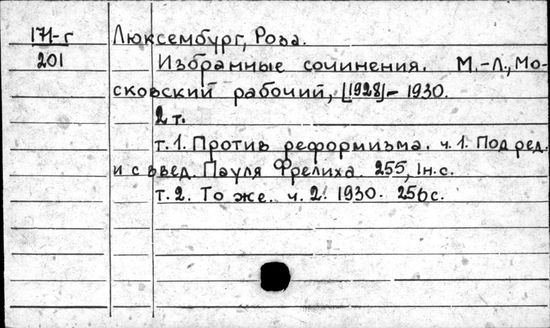 171-г Люксембург, Роза.
201 Избранные сочинения. М.-Л., Мо-
сковский рабочий, [1928]-1930.
2 т.
т.1. Против реформизма. ч.1. Под ред.
и с введ. Пауля Фрелиха. 255, 1н.с.
т.2. То же. ч.2. 1930. 256с.